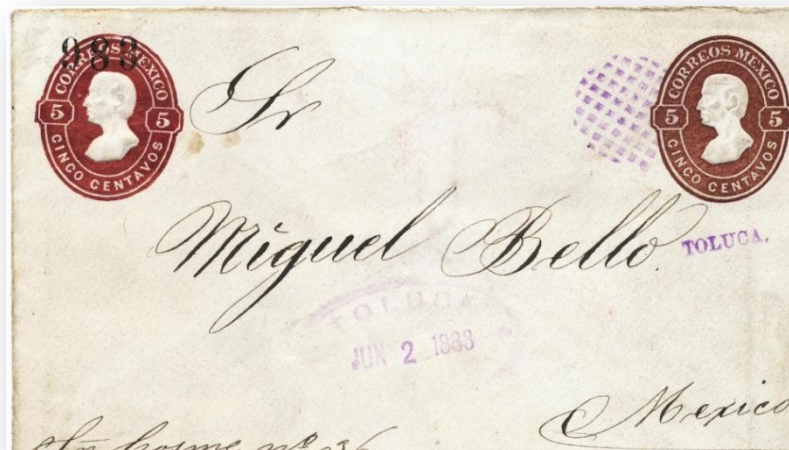 983
CORREOS MEXICO
5 5
CINCO CENTAVOS
CORREOS MEXICO
5 5
CINCO CENTAVOS
Sr
Miguel Bello.
TOLUCA.
TOLUCA
JUN 2 1883
Mexico
Sn Cosme nº